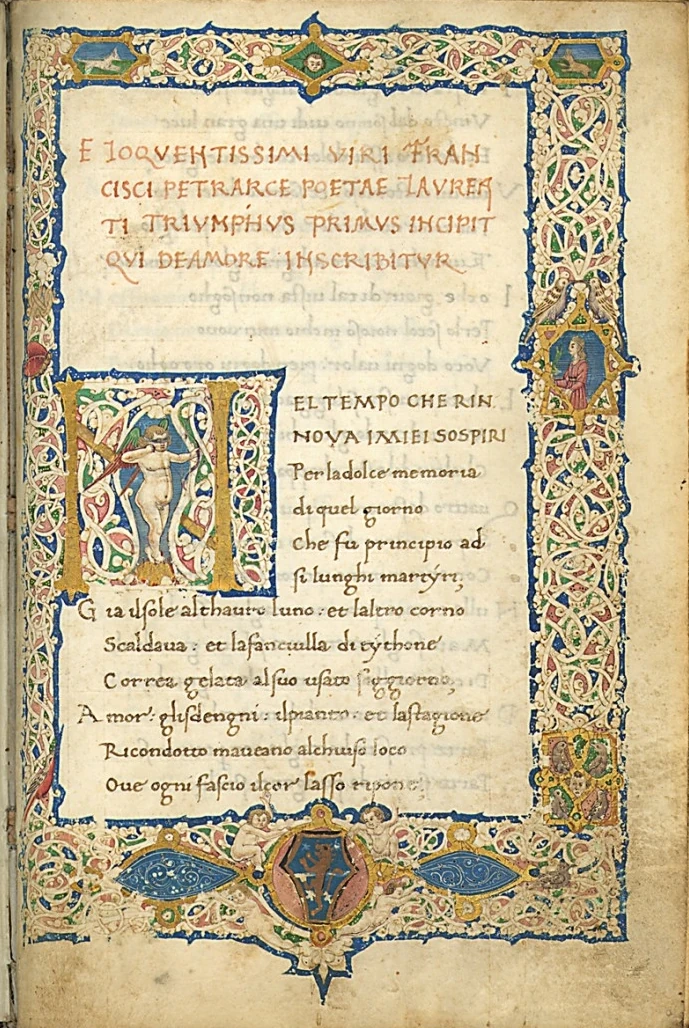 ELOQVENTISSIMI VIRI FRAN
CISCI PETRARCE POETAE LAVREA
TI TRIVMPHVS PRIMVS INCIPIT
QVI DEAMORE INSCRIBITVR
NEL TEMPO CHE RIN
NOVA IMIEI SOSPIRI
Per la dolce memoria
di quel giorno
Che fu principio ad
si lunghi martyri;
Gia ilsole althauro luno: et laltro corno
Scaldaua: et lafanciulla di tythone
Correa gelata alsuo usato soggiorno;
Amor: glisdengni: ilpianto: et lastagione
Ricondotto maueano alchiuso loco
Oue ogni fascio ilcor lasso ripone;